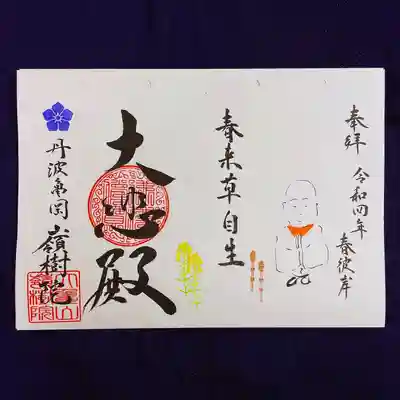 奉拝
令和四年
春彼岸
春来草自生
大悲殿
丹波亀岡
嶺樹院